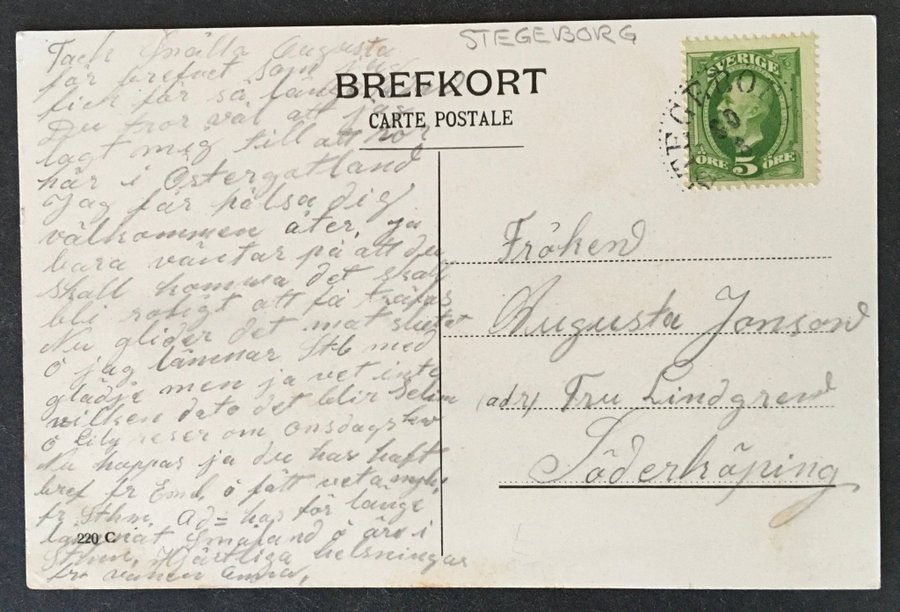 STEGEBORG
BREFKORT
CARTE POSTALE
SVERIGE
ÖRE 5 ÖRE
STEGEBO
Tack Snälla Augusta
för brefvet som jag
fick för så länge
Du tror väl att jag
lagt mig till att
här i Östergötland
Jag får hälsa dig
välkommen åter, ja
bara väntar på att du
skall komma det skall
bli roligt att få träfas
Nu glider det mot slutet
o jag lämnar Stb med
glädje men ja vet inte
vilken dato det blir Selim
o Lily reser om onsdag
Nu hoppas ja du har haft
bref fr Emd, o fått veta
fr Sthm. Ad= har för länge
Småland o är i
Sthm. Hjärtliga helsningar
fr vännen Anna.
220 C.
Fröken
Augusta Jonson
(adr) Fru Lindgren
Söderköping